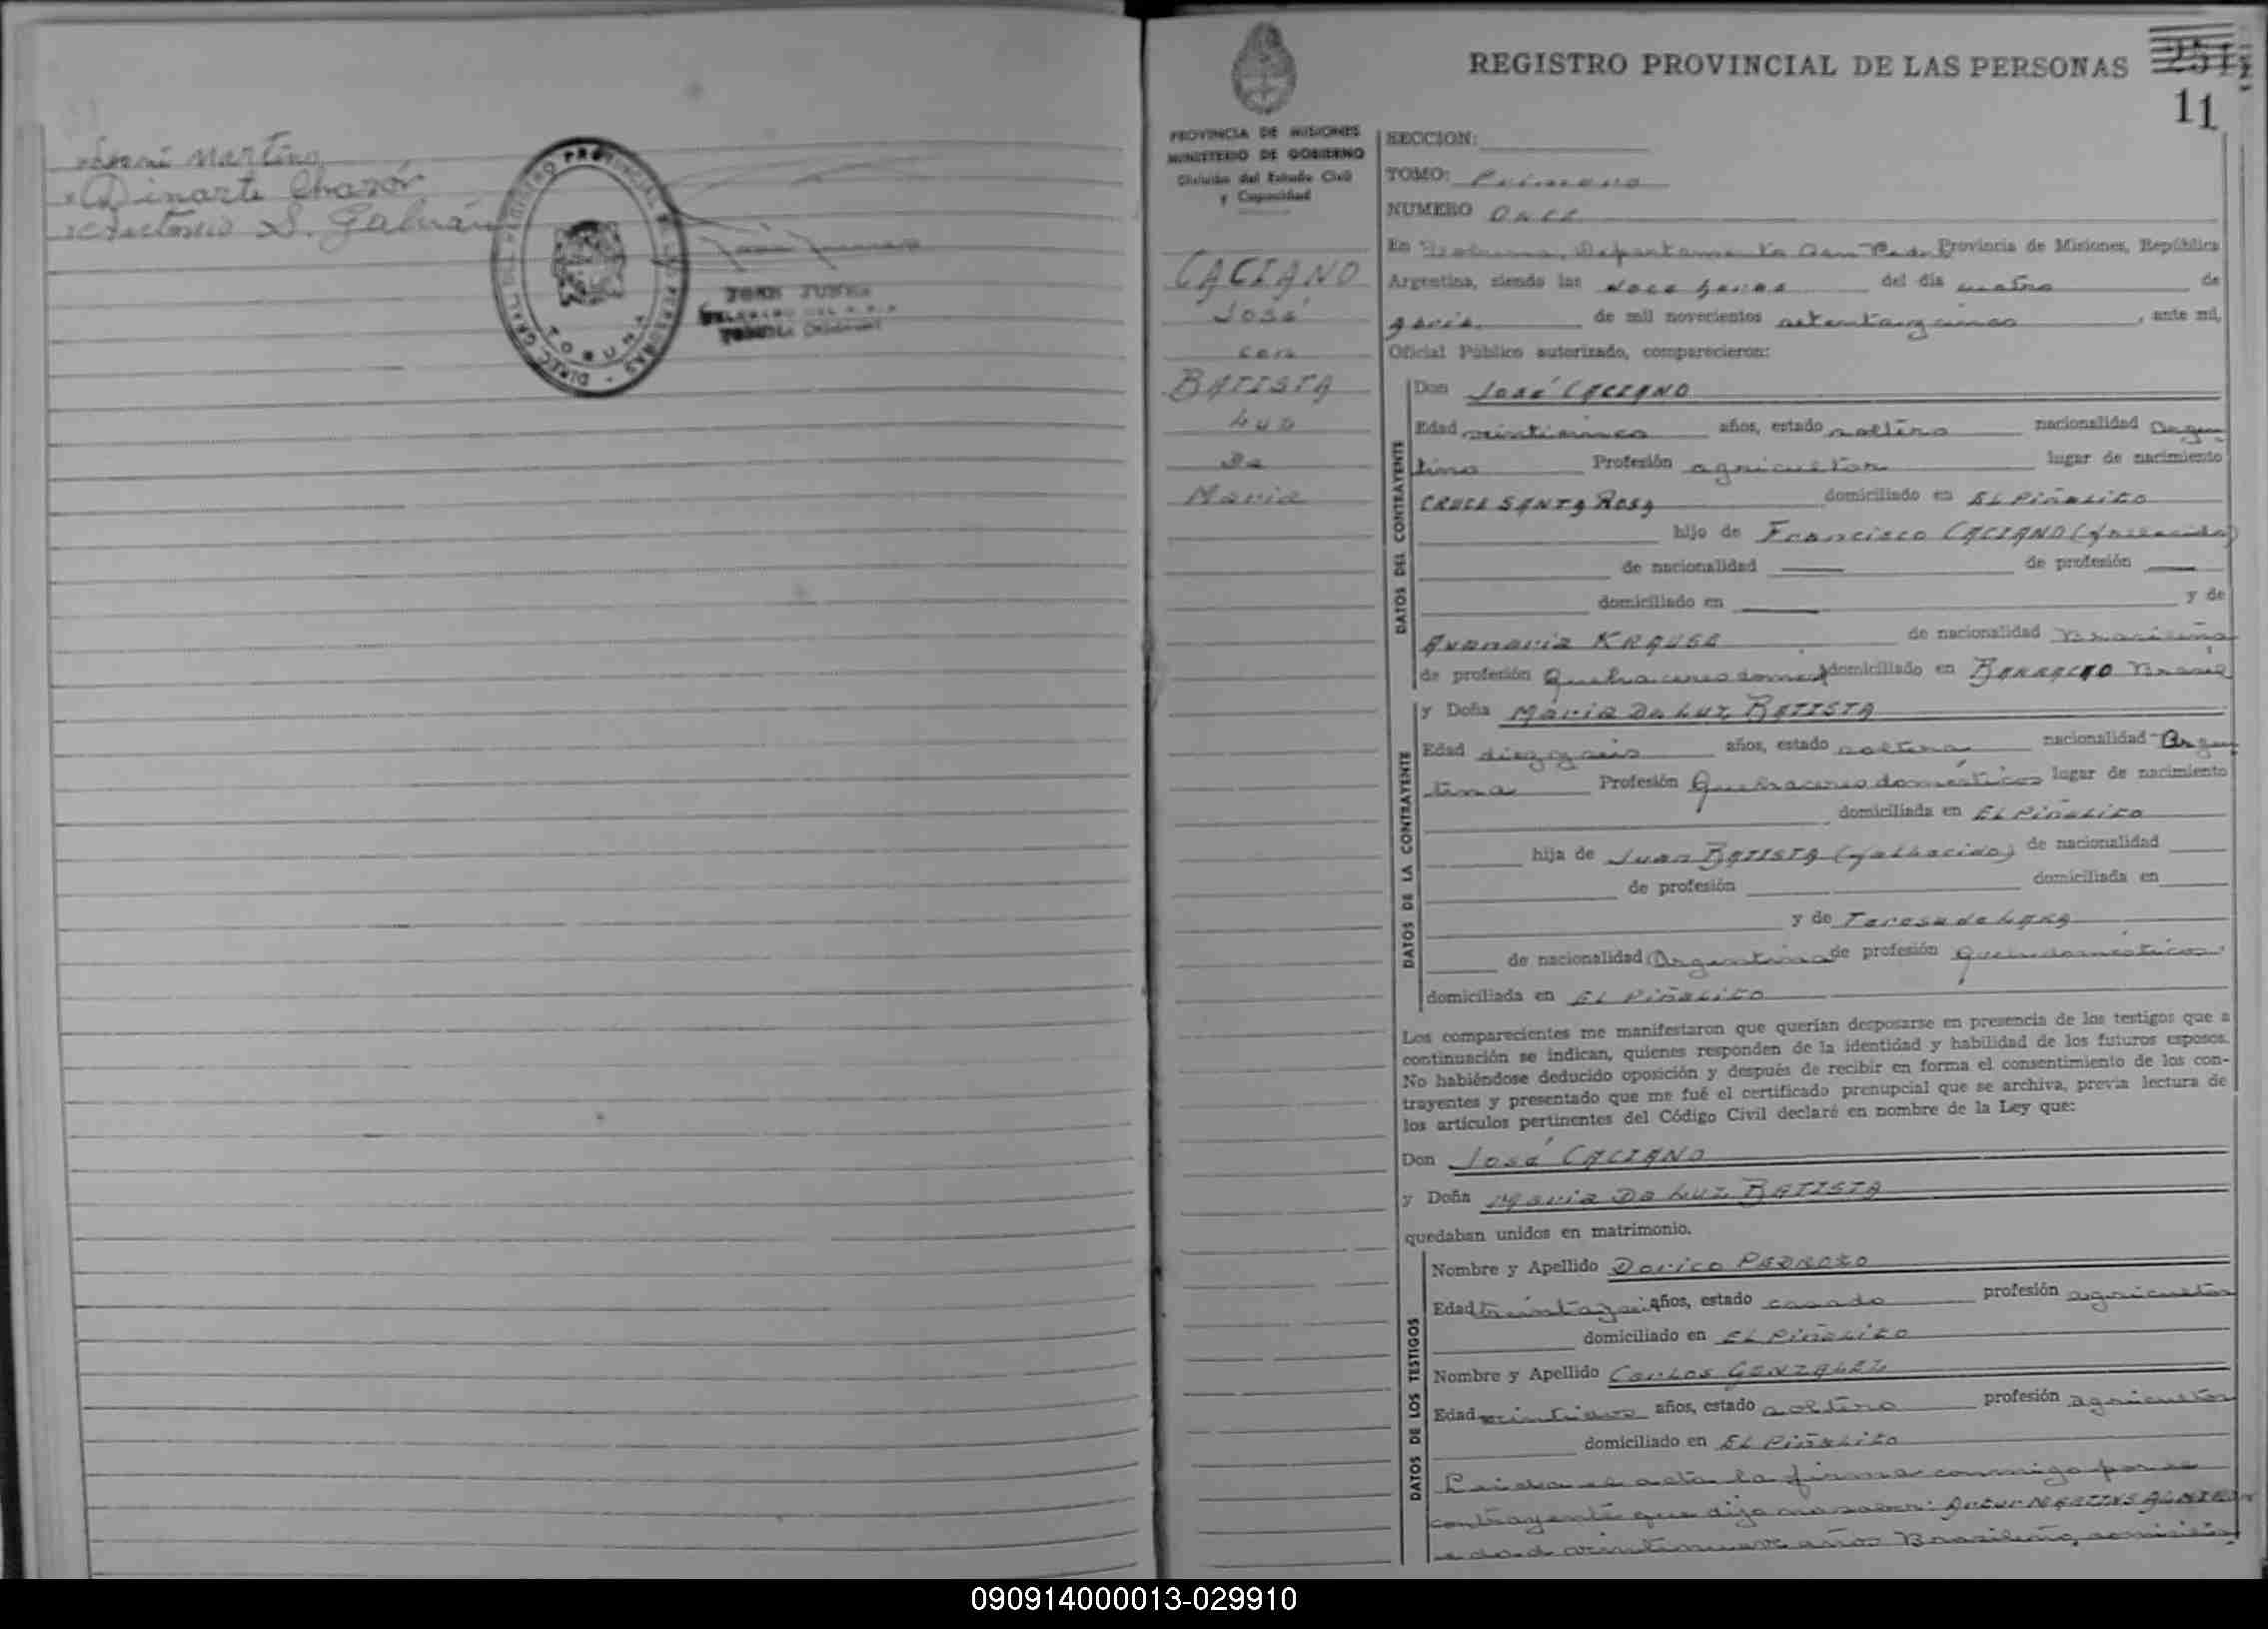 Martins
Dinarte Chazón
Antonio S. Galván
DIREC. GRAL. DEL REGISTRO PROVINCIAL DE LAS PERSONAS
TOBUNA
REGISTRO PROVINCIAL DE LAS PERSONAS
11
PROVINCIA DE MISIONES
MINISTERIO DE GOBIERNO
División del Estado Civil
y Capacidad
CACIANO
José
con
BATISTA
LUZ
Da
Maria
SECCION:
TOMO: Primero
NUMERO ONCE
En Tobuna, Departamento San Pedro Provincia de Misiones, República
Argentina, siendo las doce horas del día cuatro de
abril de mil novecientos setenta y cinco, ante mí,
Oficial Público autorizado, comparecieron:
DATOS DEL CONTRAYENTE
Don José CACIANO
Edad veinticinco años, estado soltero nacionalidad Argen
tino Profesión agricultor lugar de nacimiento
CRUCE SANTA ROSA domiciliado en EL PIÑALITO
hijo de Francisco CACIANO (fallecido)
de nacionalidad de profesión
domiciliado en y de
KRAUSE de nacionalidad Brasileña
de profesión Quehaceres domést domiciliado en BARRACAO Brasil
DATOS DE LA CONTRAYENTE
y Doña Maria Da Luz BATISTA
Edad diez y seis años, estado soltera nacionalidad Argen
tina Profesión Quehaceres domésticos lugar de nacimiento
domiciliada en EL PIÑALITO
hija de Juan BATISTA (fallecido) de nacionalidad
de profesión domiciliada en
y de Teresa de LARA
de nacionalidad Argentina de profesión Queh. domésticos
domiciliada en EL PIÑALITO
Los comparecientes me manifestaron que querían desposarse en presencia de los testigos que a
continuación se indican, quienes responden de la identidad y habilidad de los futuros esposos.
No habiéndose deducido oposición y después de recibir en forma el consentimiento de los con-
trayentes y presentado que me fué el certificado prenupcial que se archiva, previa lectura de
los artículos pertinentes del Código Civil declaré en nombre de la Ley que:
Don José CACIANO
y Doña Maria Da Luz BATISTA
quedaban unidos en matrimonio.
DATOS DE LOS TESTIGOS
Nombre y Apellido Dorico PEDROZO
Edad años, estado casado profesión agricultor
domiciliado en EL PIÑALITO
Nombre y Apellido Carlos GONZALEZ
Edad años, estado soltero profesión agricultor
domiciliado en EL PIÑALITO
Leida el acta la firma conmigo por el
contrayente que dijo no saber:
edad veintinueve años Brasileño,
090914000013-029910